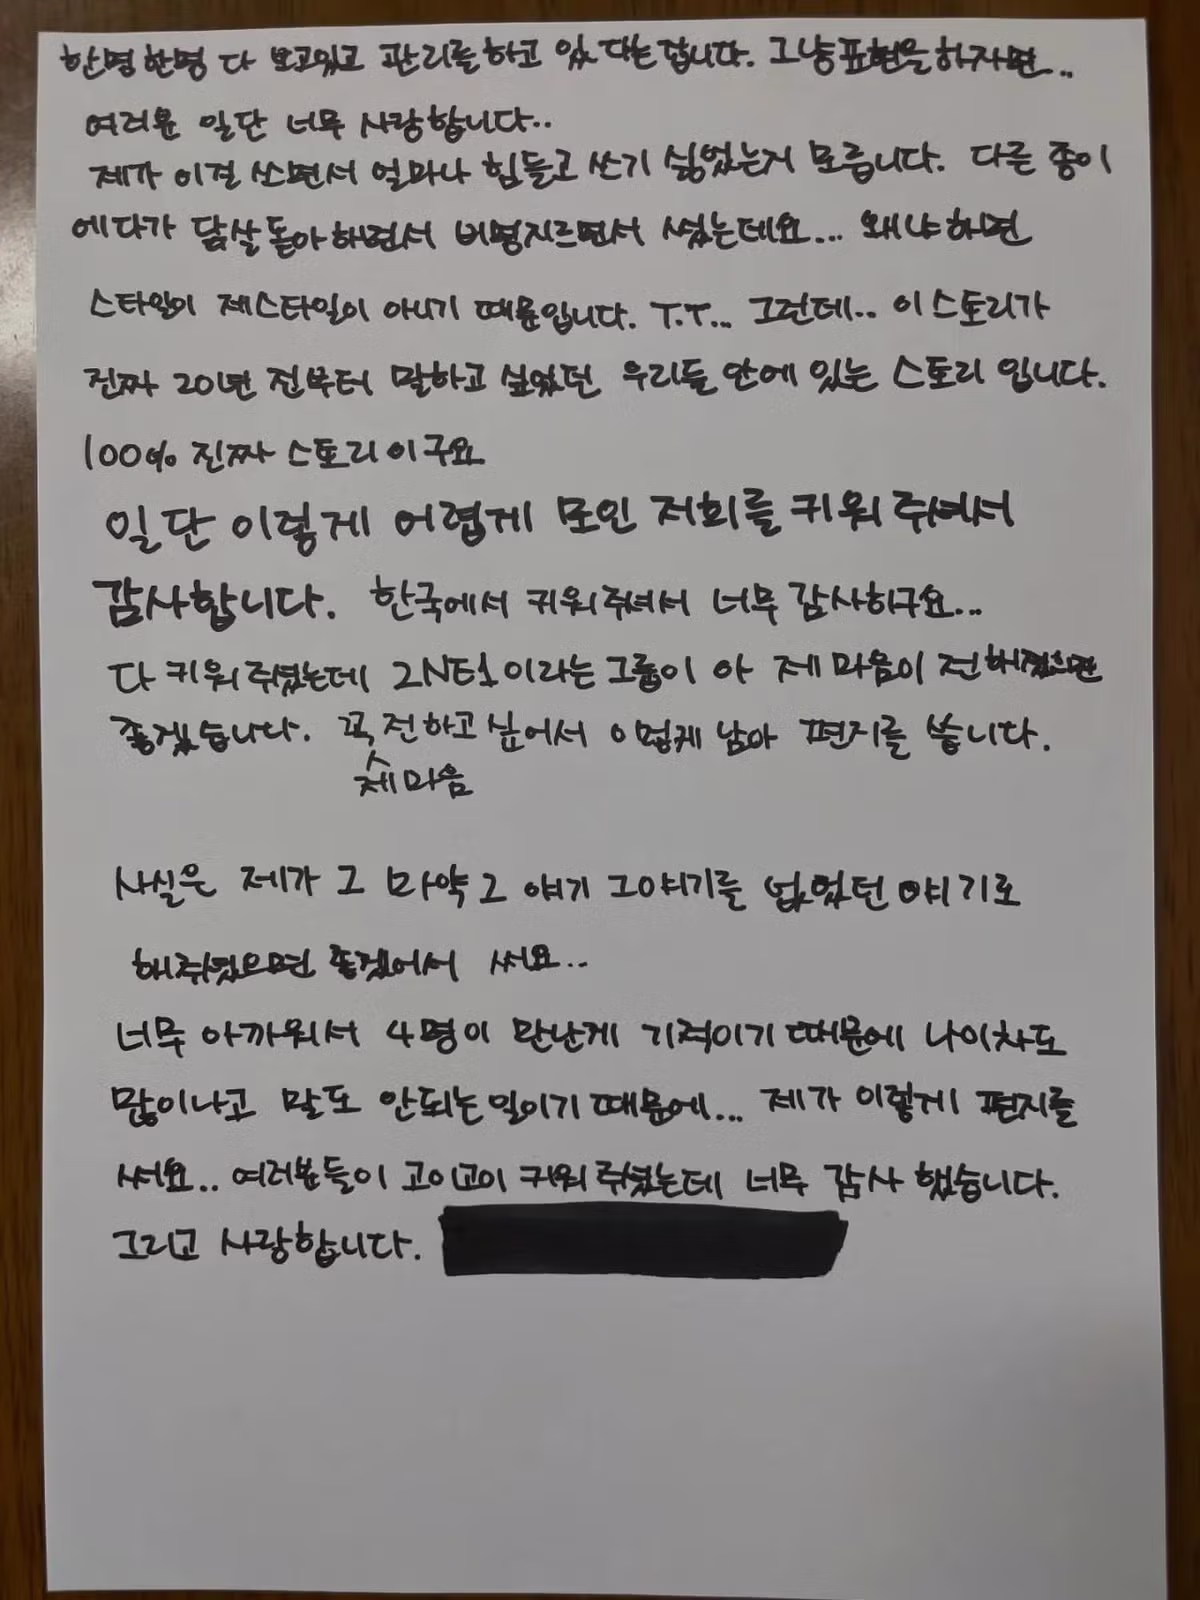 한명한명 다 보고있고 관리를하고 있다는겁니다. 그냥표현을하자면...
여러분 일단 너무 사랑합니다..
제가 이걸 쓰면서 얼마나 힘들고 쓰기 싫었는지 모릅니다. 다른 종이
에다가 닭살돋아하면서 비명지르면서 썼는데요... 왜냐하면
스타일이 제스타일이 아니기 때문입니다. T.T... 그런데.. 이스토리가
진짜 20년 전부터 말하고 싶었던 우리들 안에 있는 스토리 입니다.
100% 진짜 스토리이구요
일단 이렇게 어렵게 모인 저희를 키워주셔서
감사합니다. 한국에서 키워주셔서 너무 감사하구요...
다 키워주셨는데 2NE1이라는그룹이 아 제 마음이 전해졌으면
좋겠습니다. 꼭 전하고싶어서 이렇게 남아 편지를 씁니다.
제마음
사실은 제가 그 마약그 얘기 그얘기를 없었던 얘기로
해주셨으면 좋겠어서 써요..
너무 아까워서 4명이 만난게 기적이기때문에 나이차도
많이나고 말도 안되는일이기때문에... 제가 이렇게 편지를
써요.. 여러분들이 고이고이 키워주셨는데 너무 감사했습니다.
그리고 사랑합니다.